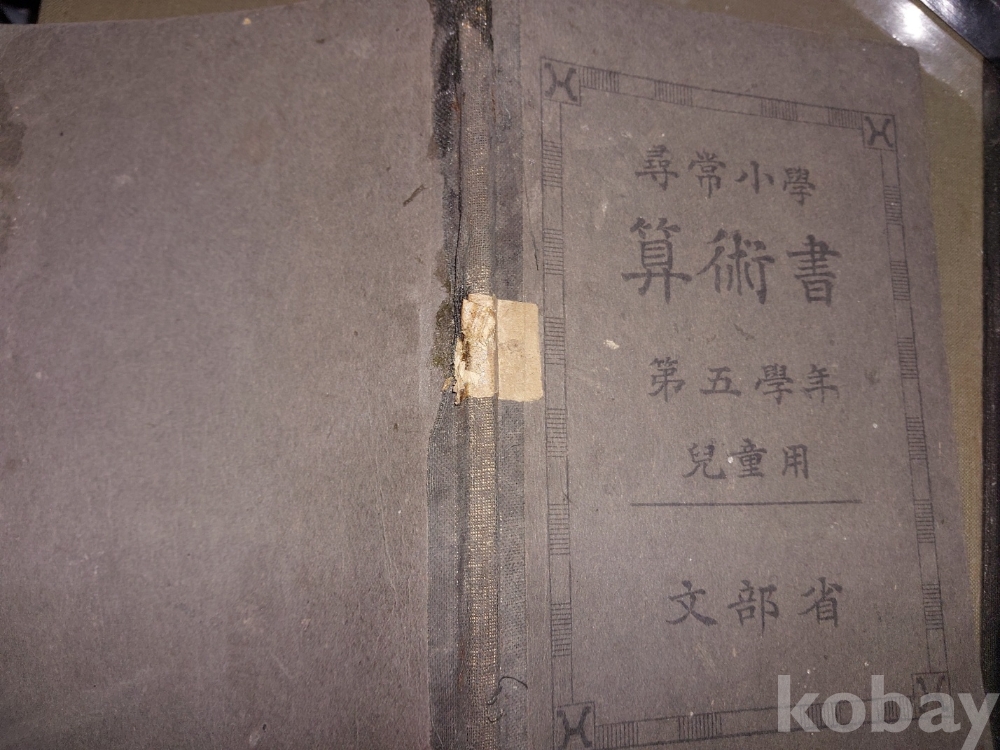 尋常小學
算術書
第五學年
兒童用
文部省
kobay